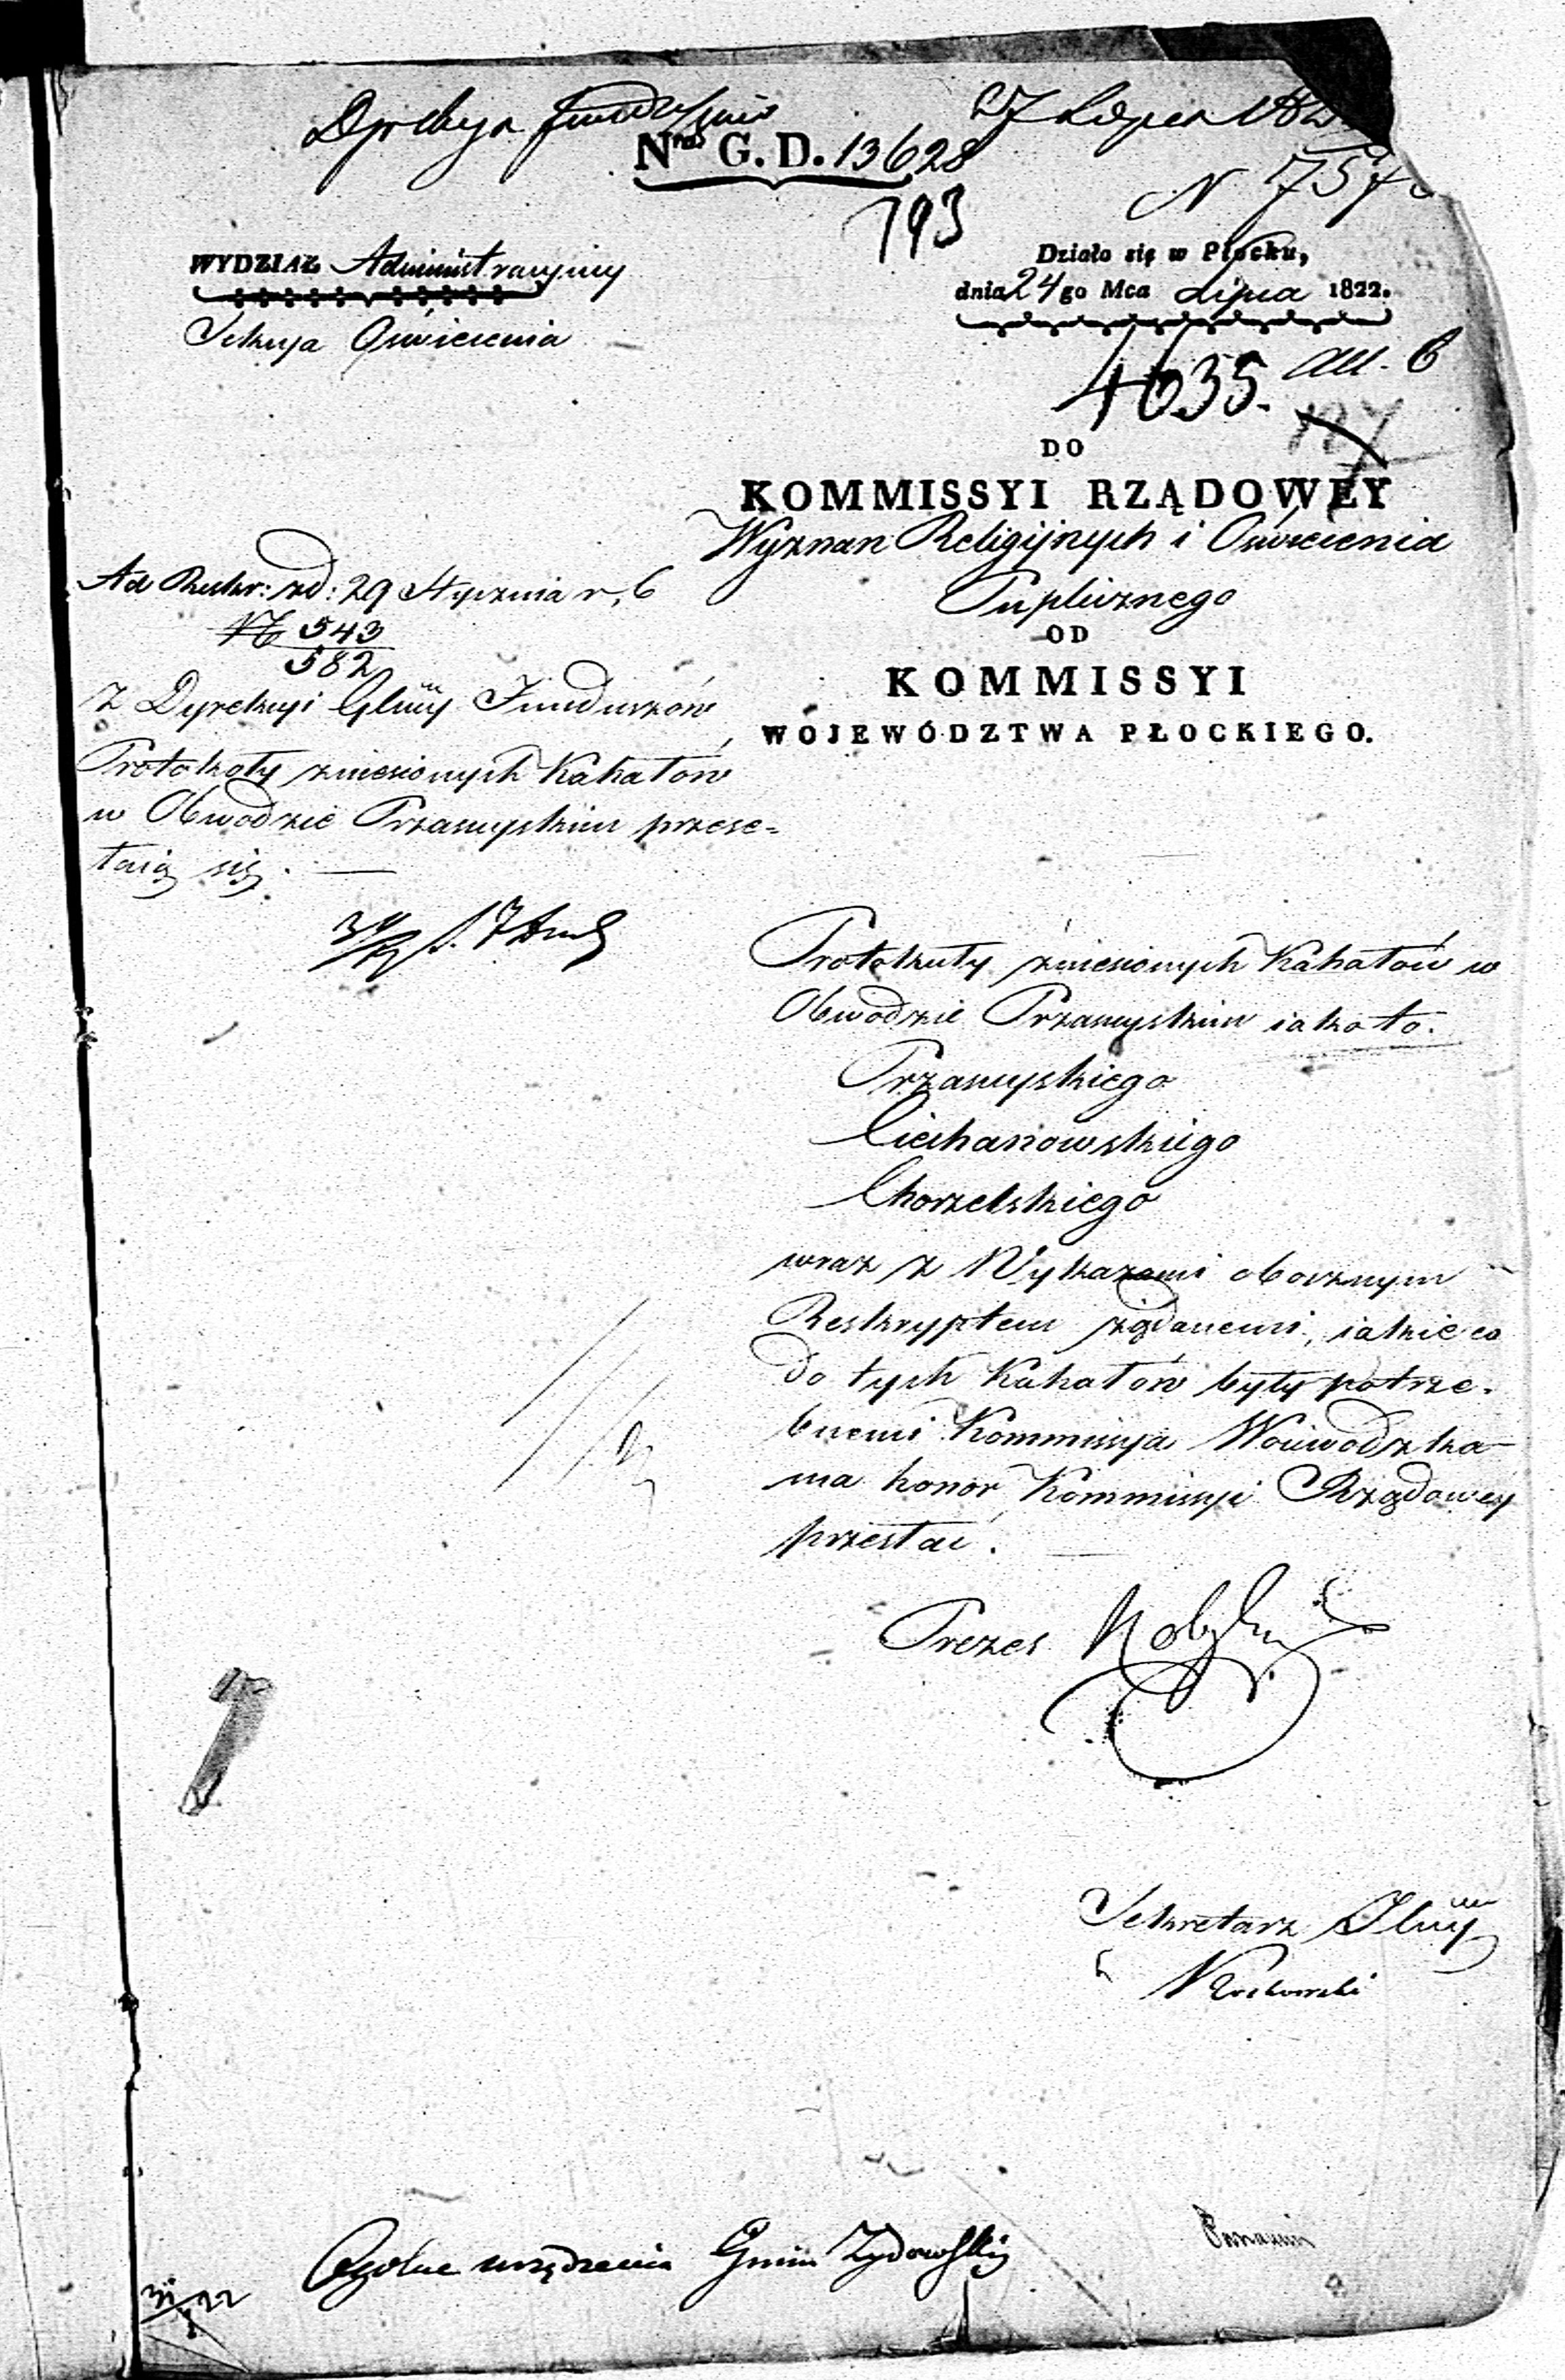 Dyrekcya Funduszów
27 Lipca 182
Nro G. D. 13628
N 757
793
WYDZIAŁ Administracyiny
Sekcya Oświecenia
Działo się w Płocku,
dnia 24go Mca Lipca 1822.
4635. all. 6
127
DO
KOMMISSYI RZĄDOWEY
Wyznan Religijnych i Oświecenia
Puplicznego
OD
KOMMISSYI
WOJEWÓDZTWA PŁOCKIEGO.
Ad Reskr: zd: 29 Stycznia r, b
N 543
582
z Dyrekcyi Głney Funduszów
Protokoły zniesionych Kahałów
w Obwodzie Przasnyskim przese=
łaią się.
Protokuły zniesionych Kahałów w
Obwodzie Przasnyskim iako to.
Przasnyskiego
Ciechanowskiego
Chorzelskiego
wraz z Wykazami obocznym
Reskryptem żądanemi, iakie co
do tych Kahałów były potrze-
bnemi Kommissya Woiewodzka
ma honor Kommissyi Rządowey
przesłać.
Prezes
Sekretarz Jlny
Ogólne urządzenia Gmin Żydowskich